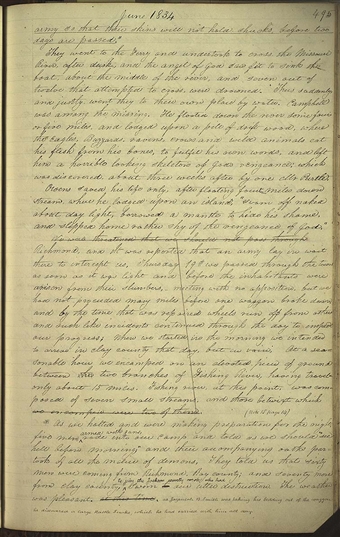 June 1834
496
army so that their skins will not hold shucks, before two
days are passed."
They went to the Ferry and undertook to cross the Missouri
River, after dusk, and the angel of God saw fit to sink the
boat, about the middle of the river, and seven out of
twelve that attempted to cross, were drowned. Thus suddenly
and justly, went they to their own place by water. Campbell
was among the missing. He floated down the river some four
or five miles, and lodged upon a pile of drift wood, where
the eagles, buzzards, ravens, crows and wild animals eat
his flesh from his bones, to fulfil his own words, and left
him a horrible looking skeleton of God's vengeance; which
was discovered about three weeks after by one Mr
Owens saved his life only, after floating four miles down
stream, where he lodged upon an island, "swam off naked
about day light, borrowed a mantle to hide his shame,
and slipped home rather shy of the vengeance of God."
threatened that we should not pass through
Richmond, and it was reported that an army lay in wait
there to intercept us. Thursday 19th we passed through the town
as soon as it was light and before the inhabitants were
arisen from their slumbers, meeting with no opposition, but we
had not proceeded many miles before one wagon broke down,
and by the time that was repaired wheels run off from others
and such like incidents continued through the day to impede
our progress. When we started in the morning we intended
to arrive in Clay county that day, but in vain. At a sea-
sonable hour we encamped on an elevated piece of ground
between two branches of Fishing River, having traveled
only about 15 miles. Fishing river, at this point was com-
posed of seven small streams, and those betwixt which
we encamped were two of them
As we halted and were making preparation for the night
five men armed with guns rode into our camp and told us we should see
hell before morning and their accompanying oaths par-
took of all the malice of demons. They told us that sixty
men were coming from Richmond, Ray county, and seventy more
from Clay county, to join the Jackson county mob, who had
sworn our utter destruction. The weather
was pleasant